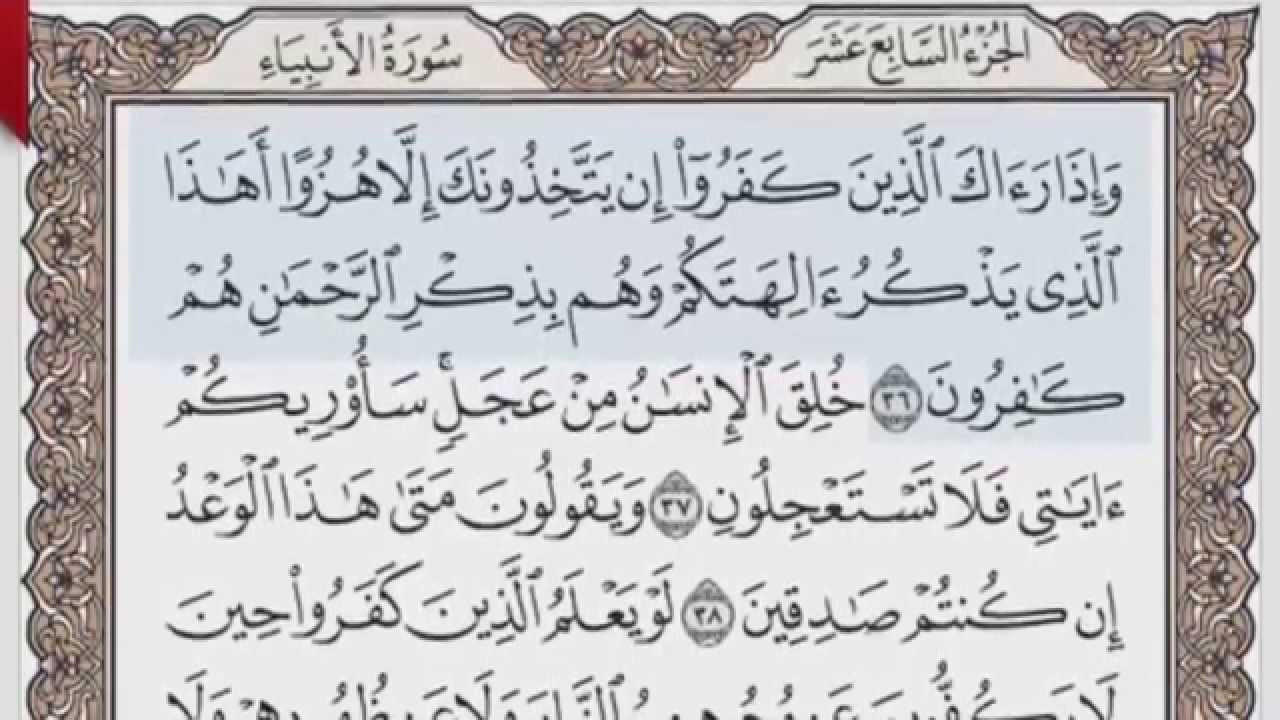 الجُزْءُ السَّابِعَ عَشَرَ
سُورَةُ الأَنبِيَاءِ
وَإِذَا رَءَاكَ ٱلَّذِينَ كَفَرُوٓا۟ إِن يَتَّخِذُونَكَ إِلَّا هُزُوًا أَهَٰذَا
ٱلَّذِى يَذْكُرُ ءَالِهَتَكُمْ وَهُم بِذِكْرِ ٱلرَّحْمَٰنِ هُمْ
كَٰفِرُونَ ٣٦ خُلِقَ ٱلْإِنسَٰنُ مِنْ عَجَلٍۚ سَأُو۟رِيكُمْ
ءَايَٰتِى فَلَا تَسْتَعْجِلُونِ ٣٧ وَيَقُولُونَ مَتَىٰ هَٰذَا ٱلْوَعْدُ
إِن كُنتُمْ صَٰدِقِينَ ٣٨ لَوْ يَعْلَمُ ٱلَّذِينَ كَفَرُوا۟ حِينَ
لَا يَكُفُّونَ عَن وُجُوهِهِمُ ٱلنَّارَ وَلَا عَن ظُهُورِهِمْ وَلَا